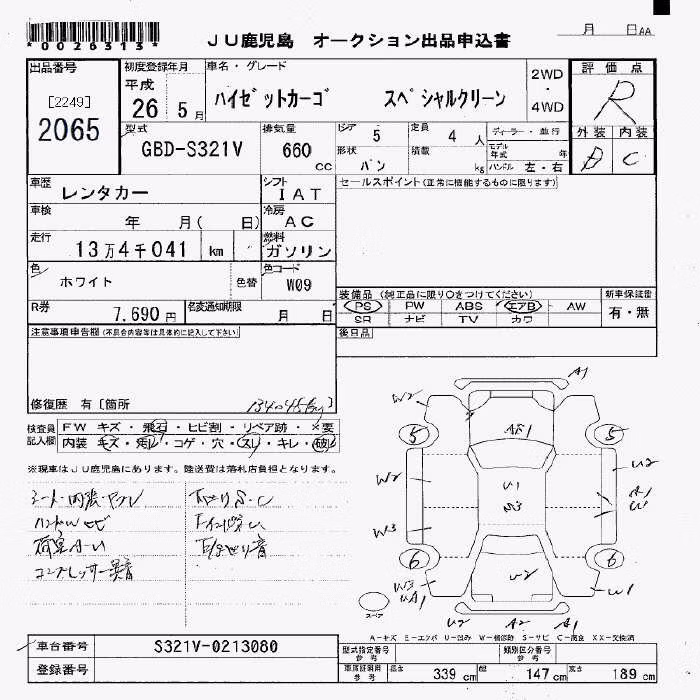 *0026313*
JU鹿児島 オークション出品申込書
月 日AA
出品番号
[2249]
2065
初度登録年月
平成
26 5月
車名・グレード
ハイゼットカーゴ スペシャルクリーン
2WD
・
4WD
評価点
R
外装 内装
D C
型式
GBD-S321V
排気量
660
CC
ドア 5
定員 4 人
形状 バン
積載 kg
ディーラー・並行
モデル年式 年
ハンドル 左・右
車歴
レンタカー
シフト
IAT
セールスポイント(正常に機能するものに限ります)
車検
年 月( 日)
冷房
AC
走行
13万4千041 km
燃料
ガソリン
色
ホワイト
色替
色コード
W09
R券
7,690円
名変通知期限
月 日
装備品(純正品に限り○をつけてください)
PS PW ABS エアB AW
SR ナビ TV カワ
新車保証書
有・無
後日品
注意事項申告欄(不具合内容等は具体的に記入して下さい)
修復歴 有〔箇所
検査員
記入欄
FW キズ・飛石・ヒビ割・リペア跡・×要
内装 キズ・汚レ・コゲ・穴・スレ・キレ・破レ
※現車はJU鹿児島にあります。陸送費は落札店負担となります。
シート・内装・
コンプレッサー異音
下廻りS・C
A1
W2
5
AS1
5
W2
U1
S3
U2
A1
W
W3
6
6
W3
UA1
U2
W1
スペア
U2 A2 U1
A-キズ E-エクボ U-凹み W-補修跡 S-サビ C-腐食 XX-交換済
車台番号
S321V-0213080
登録番号
型式指定番号
参考
類別区分番号
参考
車庫証明用
参考
長さ 339 cm 幅 147 cm 高さ 189 cm